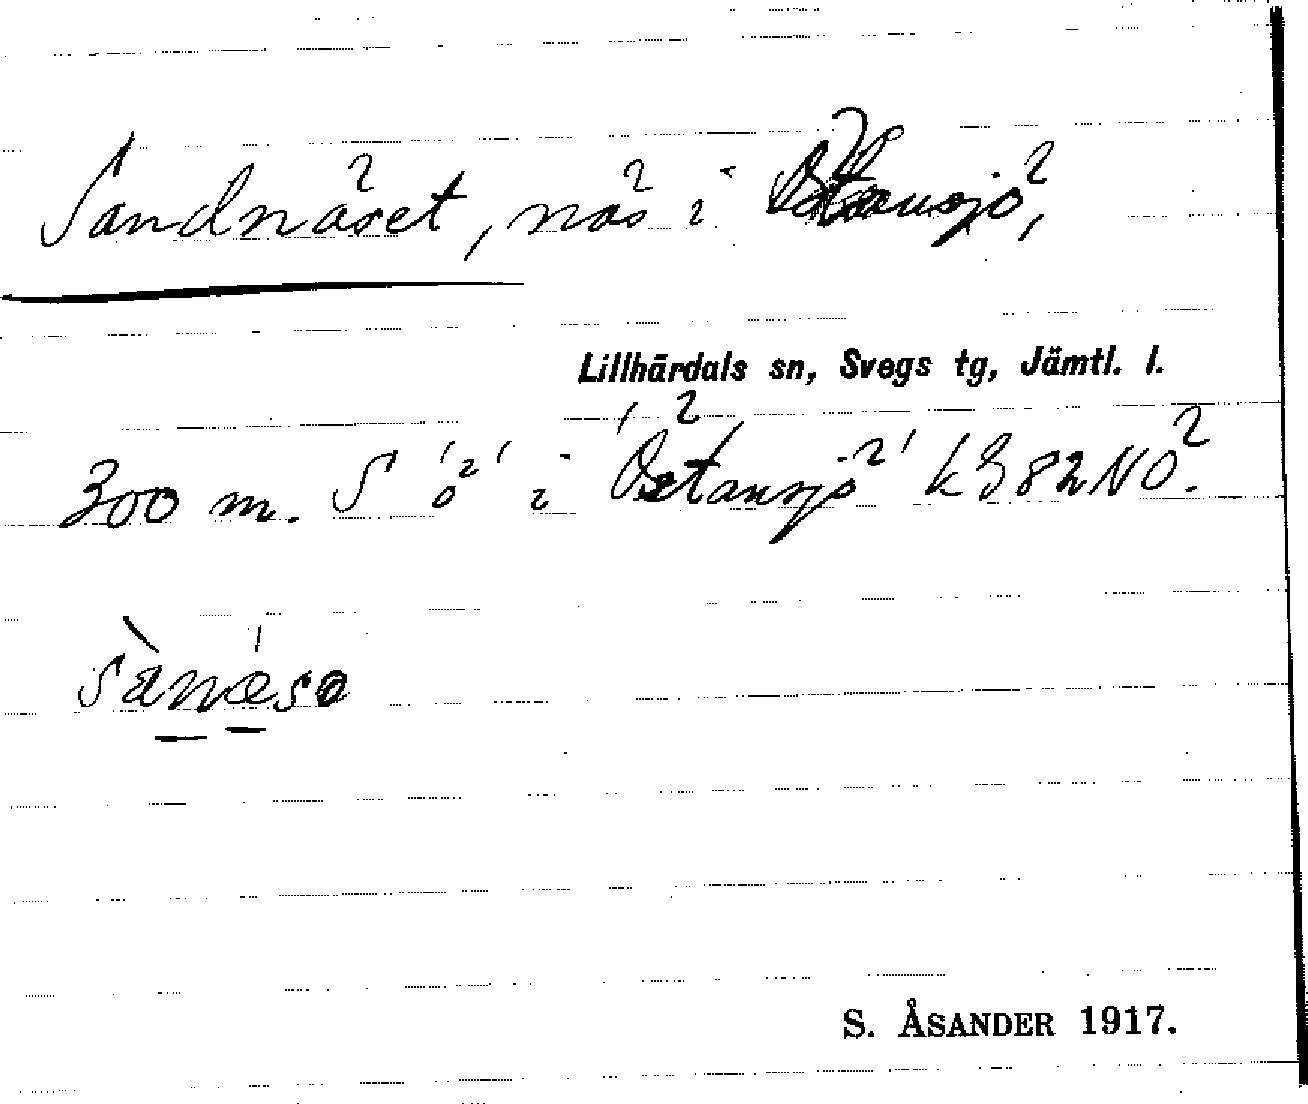 Sandnäset, näs i Östansjö,
Lillhärdals sn, Svegs tg, Jämtl. l.
300 m. S 'ö' i 'Östansjö' k382NÖ.
sànǽsə
S. ÅSANDER 1917.